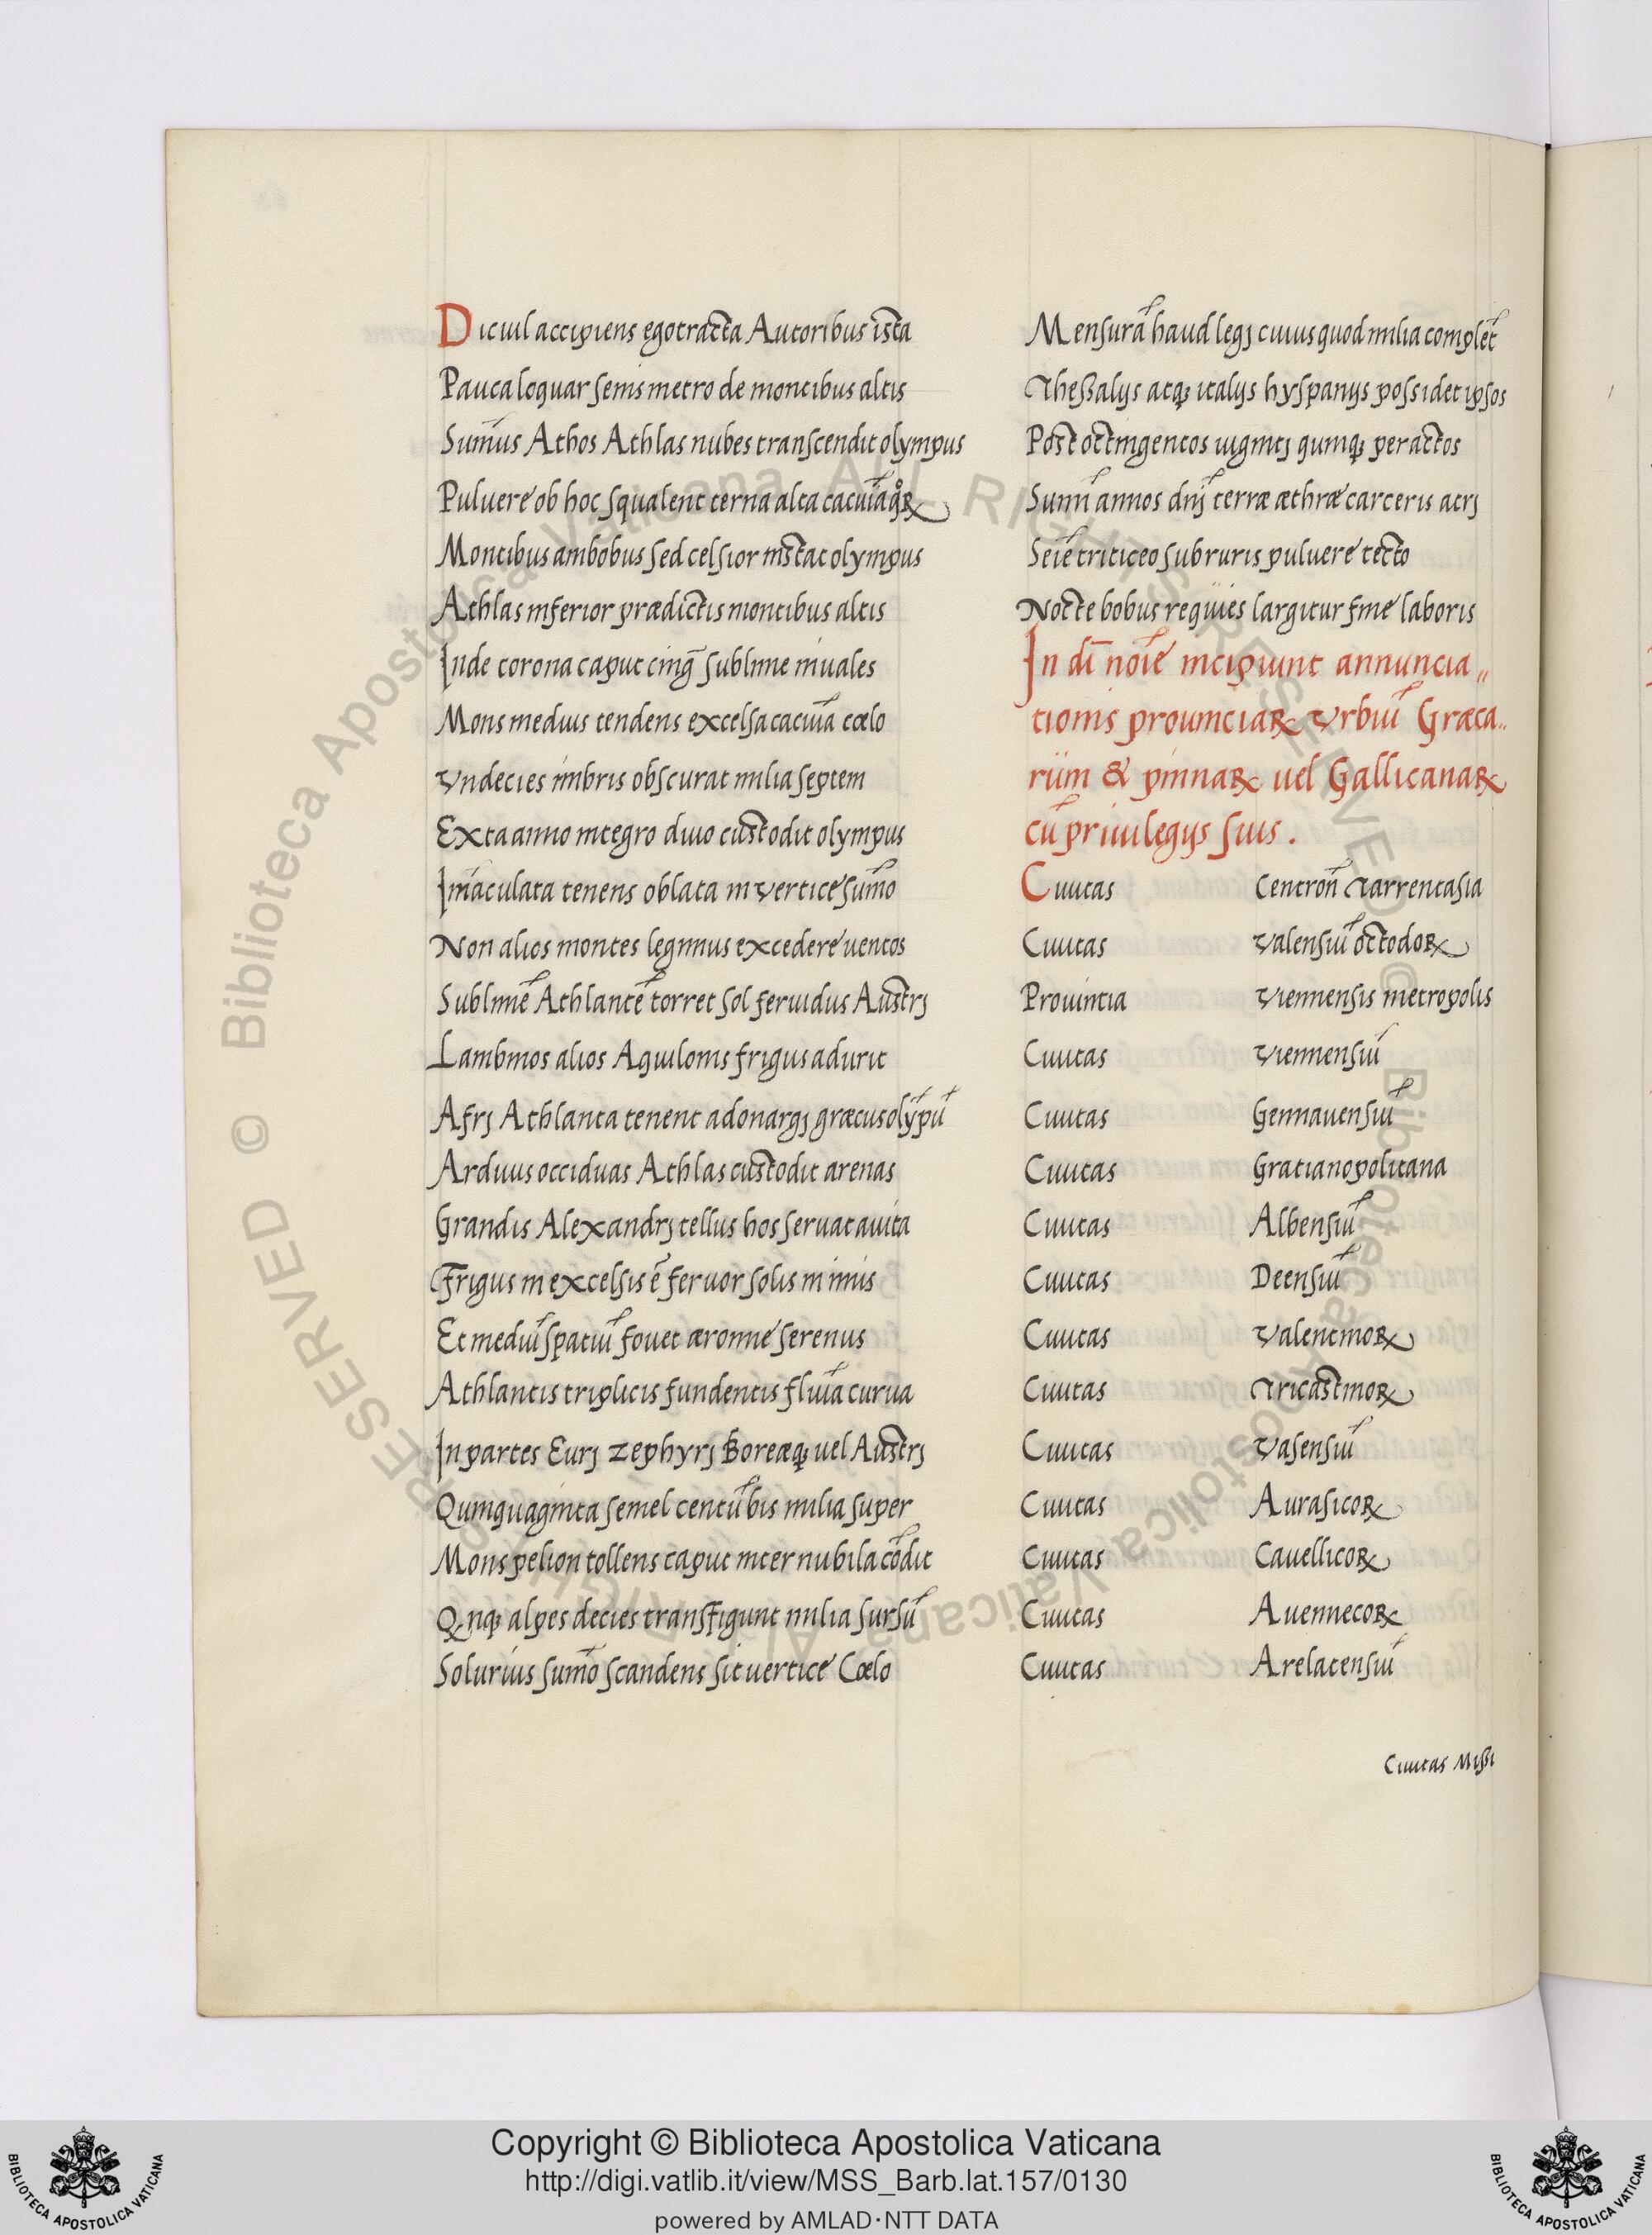 Dicuil accipiens ego tracta Autoribus ista
Pauca loquar senis metro de montibus altis
Sum̄us Athos Athlas nubes transcendit olympus
Puluere ob hoc squalent terna alta cacuīa qꝛꝝ
Montibus ambobus sed celsior instat olympus
Athlas inferior prædictis montibus altis
Inde corona caput cing̃ sublime niuales
Mons medius tendens excelsa cacuīa cœlo
Vndecies imbris obscurat milia septem
Exta anno integro diuo custodit olympus
Im̄aculata tenens oblata in vertice sum̄o
Non alios montes legimus excedere uentos
Sublimē Athlantē torret sol feruidus Austrj
Lambinos alios Aquilonis frigus adurit
Afrj Athlanta tenent adonargj græcus olȳpū
Arduus occiduas Athlas custodit arenas
Grandis Alexandrj tellus hos seruat auita
Frigus in excelsis ē feruor solis in imis
Et mediū spatiū fouet æronne serenus
Athlantis triplicis fundentis fluīa curua
In partes Eurj Zephyrj Boreæq; uel Austrj
Quinquaginta semel centū bis milia super
Mons pelion tollens caput inter nubila cōdit
Qnq; alpes decies transfigunt milia sursū
Solurius sum̄o scandens sit uertice Cœlo
Mensurā haud legj cuius quod milia complēt
Thessalijs atq; italijs hyspanijs possidet ipsos
Post octingentos uigintj quinq; peractos
Sum̄ annos dn̄j terræ æthræ carceris atrj
Seīe triticeo sub ruris puluere tecto
Nocte bobus requies largitur fine laboris
In dī noīe incipiunt annuncia„
tionis prouinciaꝝ Vrbiū Græca„
rum & pinnaꝝ uel Gallicanaꝝ
cū priuilegijs suis.
Ciuitas Centron̄ Tarrentasia
Ciuitas Valensiū octodoꝝ
Prouintia Viennensis metropolis
Ciuitas Viennensiū
Ciuitas Gennauensiū
Ciuitas Gratianopolitana
Ciuitas Albensiū
Ciuitas Deensiū
Ciuitas Valentinoꝝ
Ciuitas Tricastinoꝝ
Ciuitas Vasensiū
Ciuitas Aurasicoꝝ
Ciuitas Cauellicoꝝ
Ciuitas Auennecoꝝ
Ciuitas Arelatensiū
Ciuitas Missi
Copyright © Biblioteca Apostolica Vaticana
http://digi.vatlib.it/view/MSS_Barb.lat.157/0130
powered by AMLAD·NTT DATA